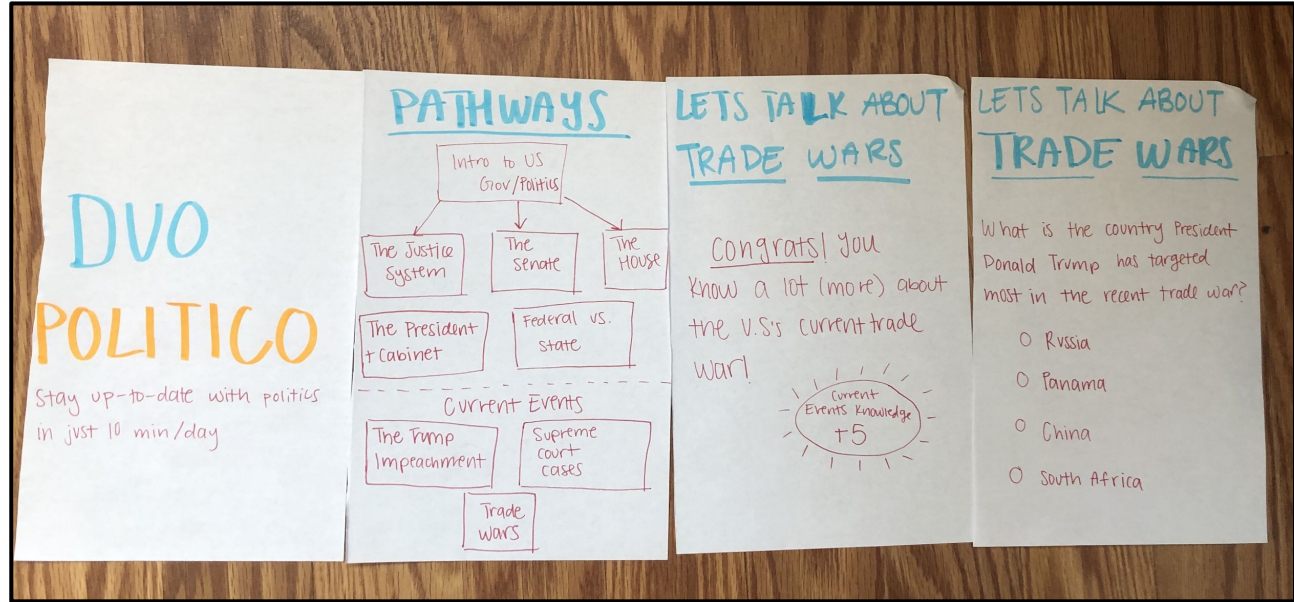 DUO
POLITICO
Stay up-to-date with politics
in just 10 min/day
PATHWAYS
Intro to US
Gov/Politics
The Justice
System
The
Senate
The
House
The President
+ Cabinet
Federal vs.
State
Current Events
The Trump
Impeachment
Supreme
court
cases
Trade
wars
LETS TALK ABOUT
TRADE WARS
Congrats! You
know a lot (more) about
the U.S's current trade
war!
Current
Events Knowledge
+5
LETS TALK ABOUT
TRADE WARS
What is the country President
Donald Trump has targeted
most in the recent trade war?
Russia
Panama
China
South Africa